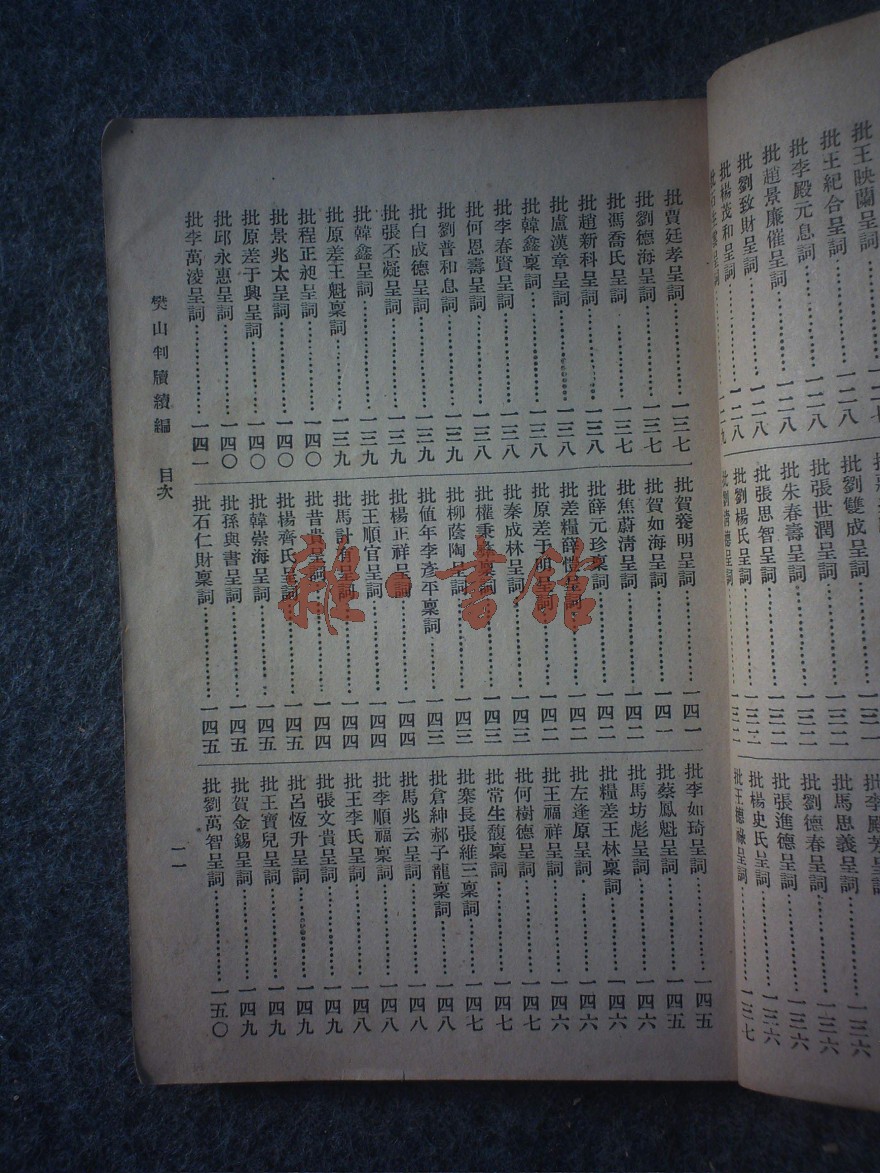 批王映蘭呈詞………一二八
批王紀合呈詞………一二八
批李殿元息詞………一二八
批趙景廉催呈詞………一二八
批劉致財呈詞………一二八
批楊茂和呈詞………一二八
呈詞………一二九
批劉雙成呈詞………一三二
批張世潤呈詞………一三二
批朱春壽呈詞………一三二
批張思智呈詞………一三二
批劉楊氏呈詞………一三二
批馬思義呈詞………一三六
批劉德春呈詞………一三六
批張進德呈詞………一三六
批楊史氏呈詞………一三六
批王德祿呈詞………一三七
批賈廷孝呈詞………一三七
批劉德海呈詞………一三七
批馮喬氏呈詞………一三七
批趙新科呈詞………一三八
批盧漢章呈詞………一三八
批韓鑫稟詞………一三八
批李春賢呈詞………一三八
批何恩壽呈詞………一三八
批劉普和息詞………一三九
批白成德呈詞………一三九
批張丕凝呈詞………一三九
批韓鑫呈詞………一三九
批原差王魁稟詞………一三九
批程正昶呈詞………一四〇
批景兆太呈詞………一四〇
批原差于興呈詞………一四〇
批邱永惠呈詞………一四〇
批李萬淩呈詞………一四一
批賀養明呈詞………一四一
批賀如海呈詞………一四一
批焦蔚淸呈詞………一四二
批薛元珍稟詞………一四二
批差糧薛愷呈詞………一四二
批原差于朋呈詞………一四二
批秦成林呈詞………一四三
批權秉彝稟詞………一四三
批柳蔭陶呈詞………一四三
批値年李彥平稟詞………一四三
批楊正祥呈詞………一四四
批王順官呈詞………一四四
批馬計有呈詞………一四四
批昔貴呈詞………一四四
批楊齊氏呈詞………一四五
批韓崇海呈詞………一四五
批孫與書呈詞………一四五
批石仁財稟詞………一四五
批李如琦呈詞………一四五
批蔡鳳魁呈詞………一四五
批馬坊彪呈詞………一四六
批糧差王林稟詞………一四六
批左逢原呈詞………一四六
批王福祥呈詞………一四六
批何樹德呈詞………一四七
批常生馥稟詞………一四七
批寨長張維三稟詞………一四七
批倉紳郝子龍稟詞………一四八
批馬兆云呈詞………一四八
批李順福稟詞………一四八
批王李氏呈詞………一四八
批張文貴呈詞………一四九
批呂恆升呈詞………一四九
批王寶兒呈詞………一四九
批賀金錫呈詞………一四九
批劉萬智呈詞………一五〇
樊山判牘續編　目次
一一
雜·書館